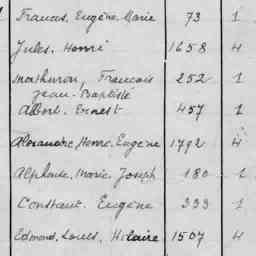 Francis, Eugène, Marie 73 1
Jules, Henri 1658 4
Mathurin, Francois 252 1
Jean-Baptiste
Albert, Ernest 457 1
Alexandre, Henri, Eugène 1792 4
Alphonse, Marie Joseph 180 1
Constant, Eugène 333 1
Edmond, Louis, Hilaire 1507 4